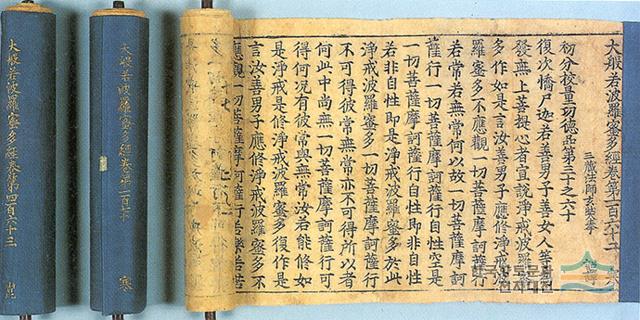 大般若波羅蜜多經卷第一百六十二
三藏法師玄奘奉 詔譯
初分校量功德品第三十之六十
復次憍尸迦若善男子善女人等爲
發無上菩提心者宣說淨戒波羅蜜
多作如是言汝善男子應修淨戒波
羅蜜多不應觀一切菩薩摩訶薩行
若常若無常何以故一切菩薩摩訶
薩行一切菩薩摩訶薩行自性空是
一切菩薩摩訶薩行自性即非自性
若非自性即是淨戒波羅蜜多於此
淨戒波羅蜜多一切菩薩摩訶薩行
不可得彼常無常亦不可得所以者
何此中尚無一切菩薩摩訶薩行可
得何況有彼常與無常汝若能修如
是淨戒是修淨戒波羅蜜多復作是
言汝善男子應修淨戒波羅蜜多不
應觀一切菩薩摩訶薩行若樂若苦
大般若波羅蜜多經卷第二百十
寒
大般若波羅蜜多經卷第四百六十三
崑